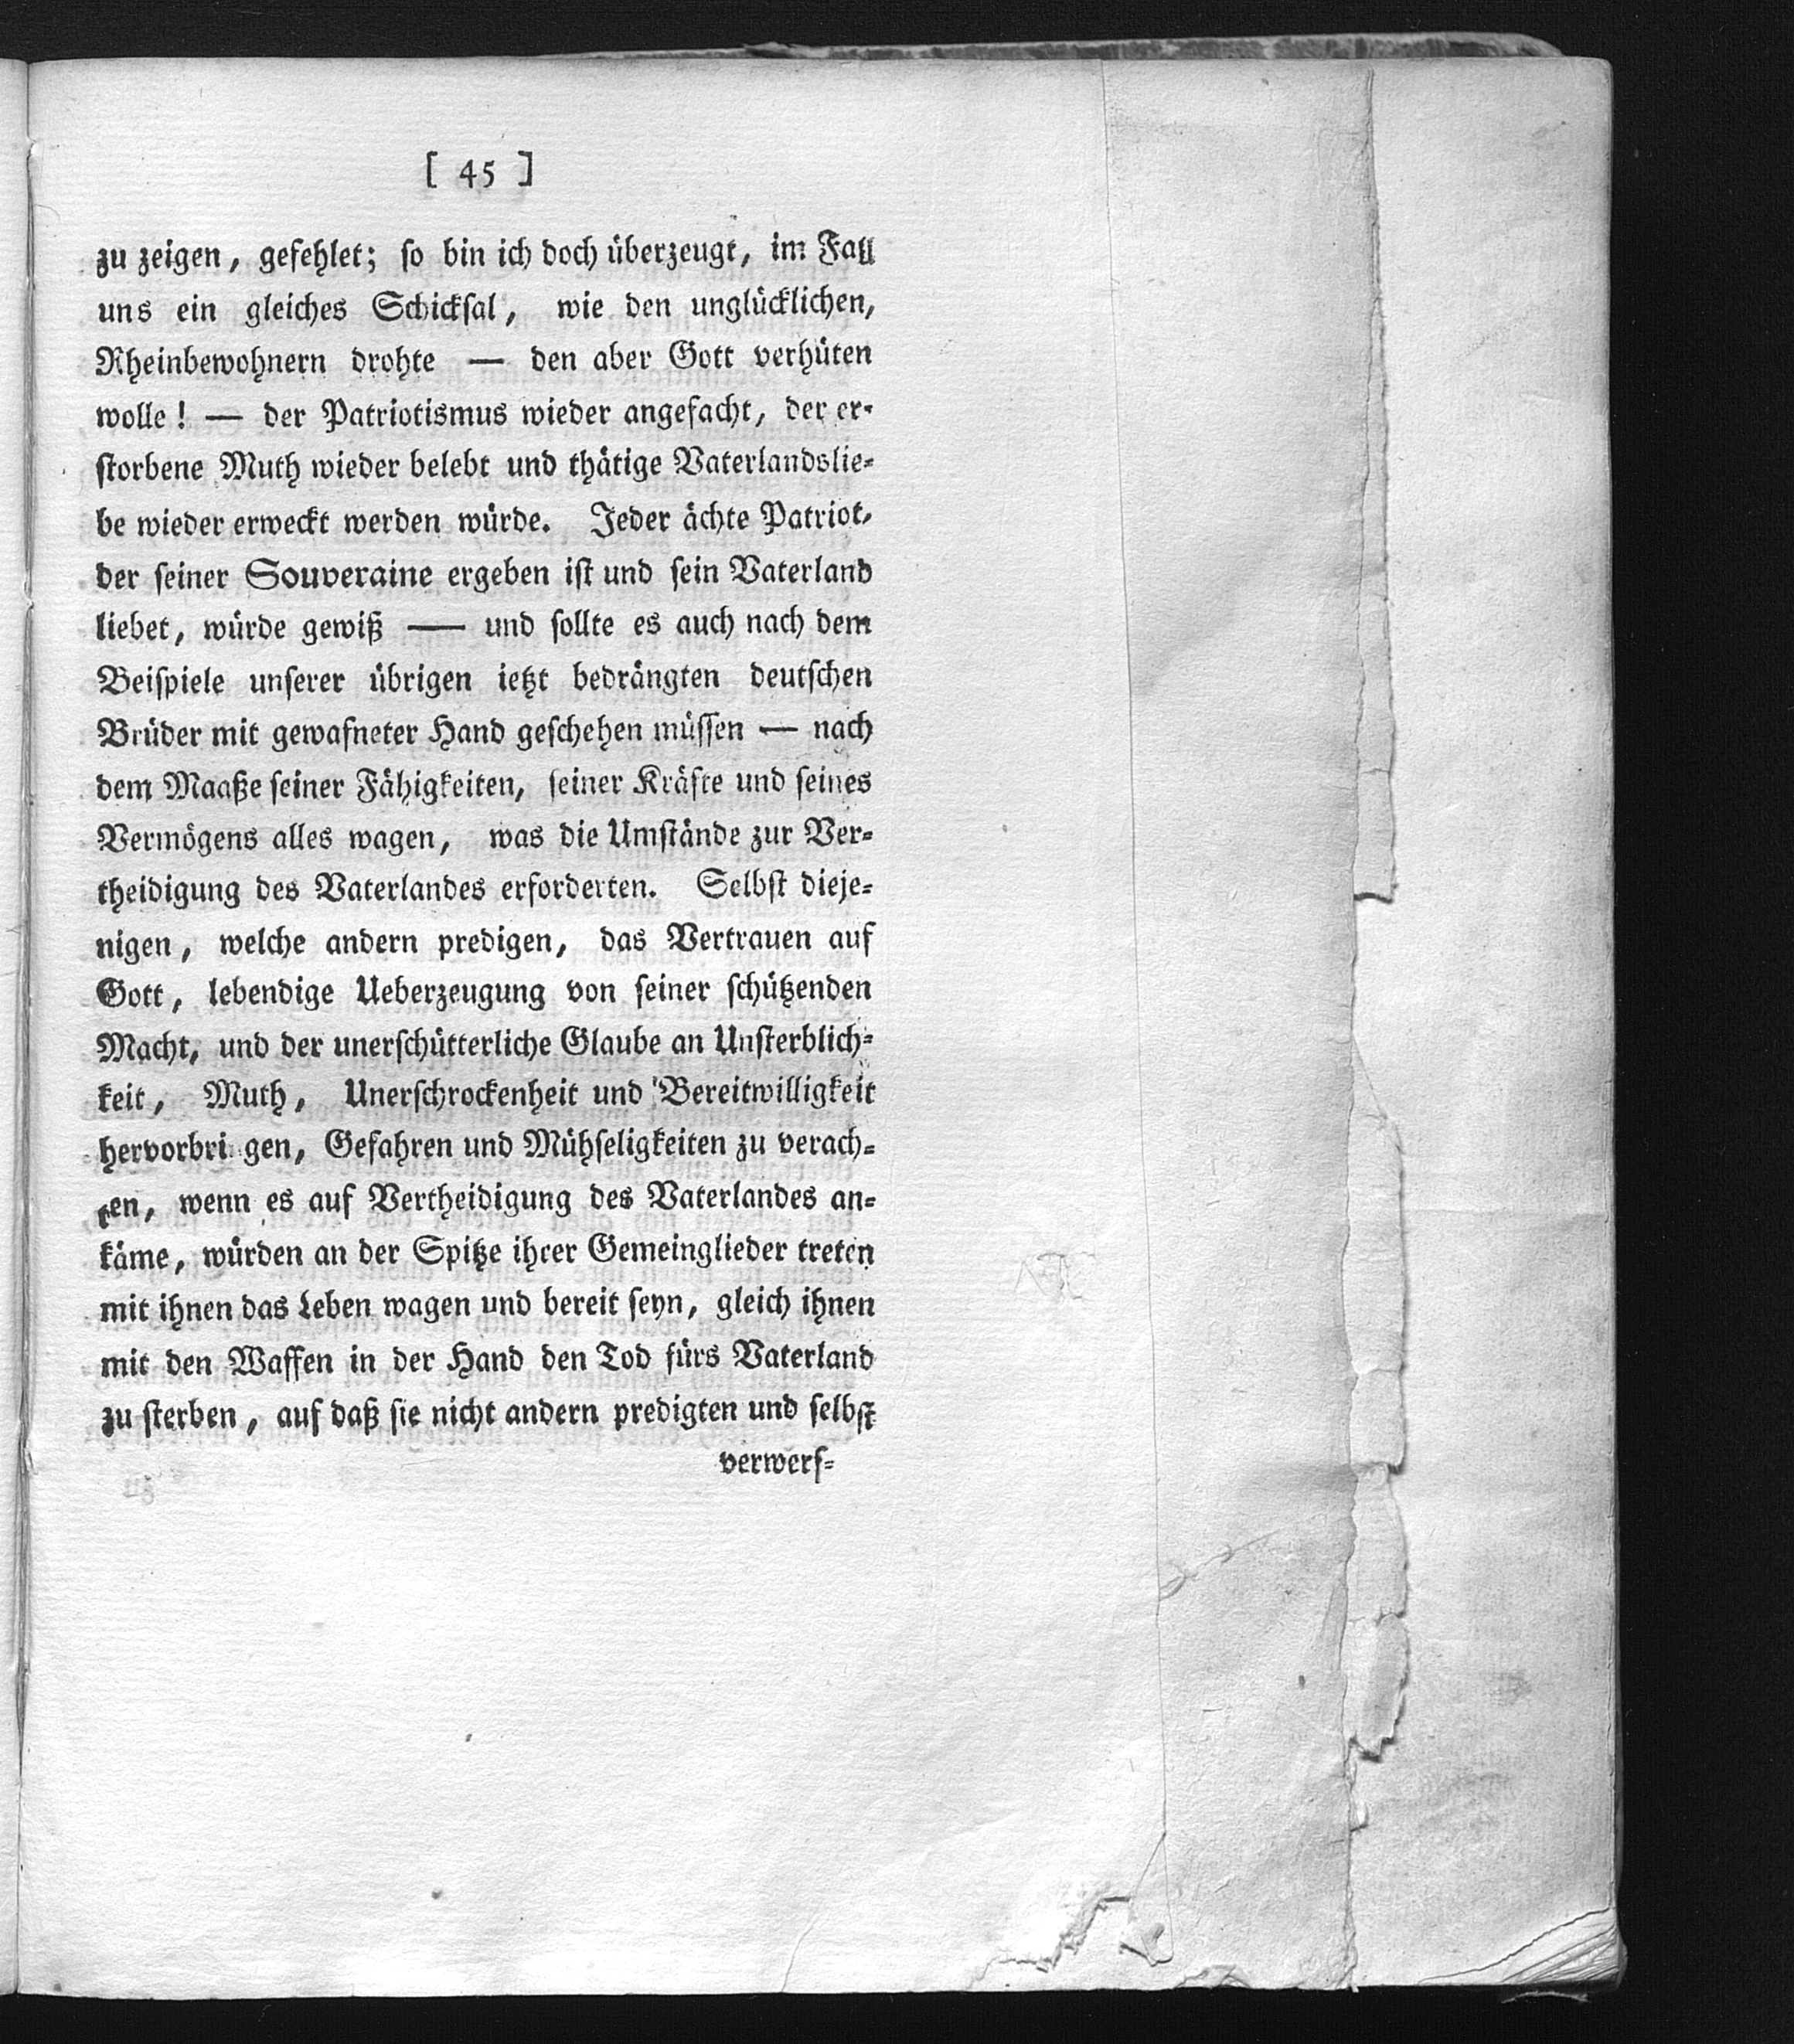 [ 45 ]
zu zeigen, gefehlet; so bin ich doch überzeugt, im Fall
uns ein gleiches Schicksal, wie den unglücklichen,
Rheinbewohnern drohte — den aber Gott verhüten
wolle! — der Patriotismus wieder angefacht, der er-
storbene Muth wieder belebt und thätige Vaterlandslie-
be wieder erweckt werden würde. Jeder ächte Patriot,
der seiner Souveraine ergeben ist und sein Vaterland
liebet, würde gewiß — und sollte es auch nach dem
Beispiele unserer übrigen ietzt bedrängten deutschen
Brüder mit gewafneter Hand geschehen müssen — nach
dem Maaße seiner Fähigkeiten, seiner Kräfte und seines
Vermögens alles wagen, was die Umstände zur Ver-
theidigung des Vaterlandes erforderten. Selbst dieje-
nigen, welche andern predigen, das Vertrauen auf
Gott, lebendige Ueberzeugung von seiner schützenden
Macht, und der unerschütterliche Glaube an Unsterblich-
keit, Muth, Unerschrockenheit und Bereitwilligkeit
hervorbri gen, Gefahren und Mühseligkeiten zu verach-
ten, wenn es auf Vertheidigung des Vaterlandes an-
käme, würden an der Spitze ihrer Gemeinglieder treten
mit ihnen das Leben wagen und bereit seyn, gleich ihnen
mit den Waffen in der Hand den Tod fürs Vaterland
zu sterben, auf daß sie nicht andern predigten und selbst
verwerf-